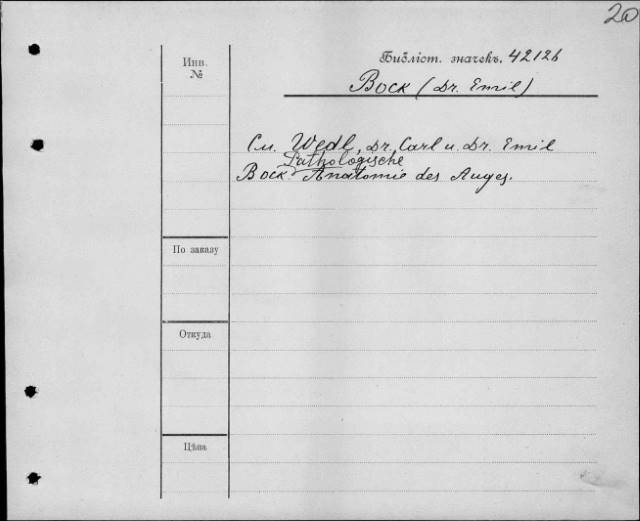 20
Инв.
№
Библіот. значекъ. 42126
Bock (Dr. Emil)
См. Wedl, Dr. Carl u. Dr. Emil
Pathologische
Bock. Anatomie des Auges.
По заказу
Откуда
Цѣна